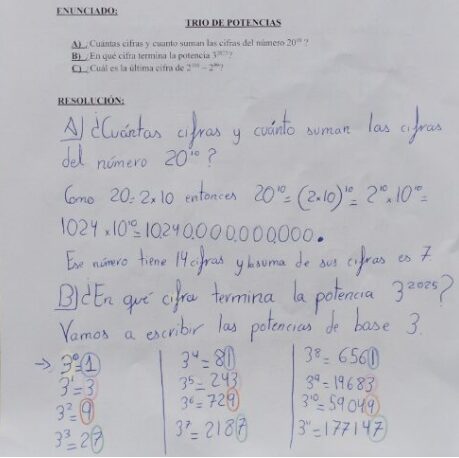 ENUNCIADO:
TRIO DE POTENCIAS
A) ¿Cuántas cifras y cuanto suman las cifras del número 20¹⁰ ?
B) ¿En qué cifra termina la potencia 3²⁰²⁵?
C) ¿Cuál es la última cifra de
RESOLUCIÓN:
A) ¿Cuántas cifras y cuánto suman las cifras
del número 20¹⁰ ?
Como 20=2×10 entonces 20¹⁰=(2×10)¹⁰=2¹⁰×10¹⁰=
1024×10¹⁰=10.240.000.000.000.
Ese número tiene 14 cifras y la suma de sus cifras es 7
B) ¿En qué cifra termina la potencia 3²⁰²⁵?
Vamos a escribir las potencias de base 3.
→ 3⁰=1
3¹=3
3²=9
3³=27
3⁴=81
3⁵=243
3⁶=729
3⁷=2187
3⁸=6561
3⁹=19683
3¹⁰=59049
3¹¹=177147